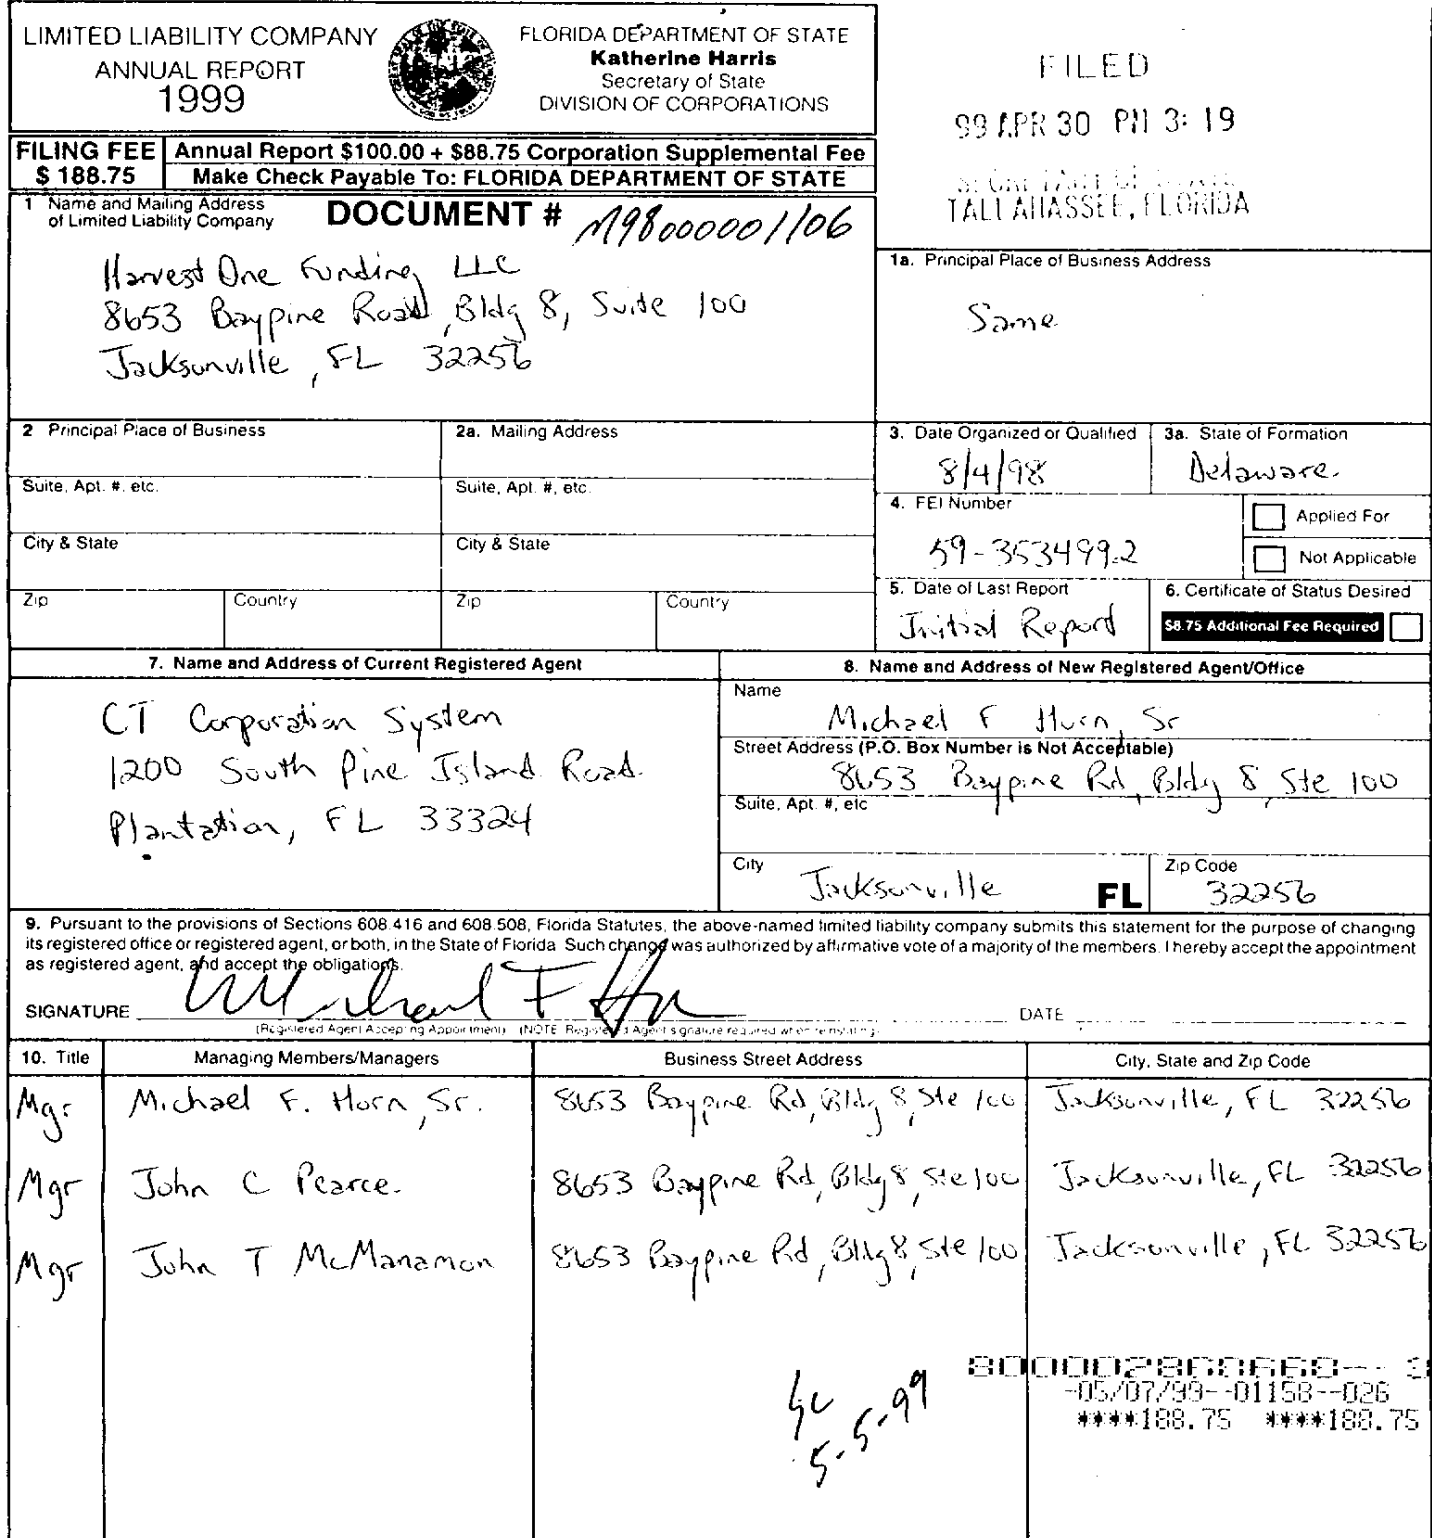 LIMITED LIABILITY COMPANY
ANNUAL REPORT
1999
FLORIDA DEPARTMENT OF STATE
Katherine Harris
Secretary of State
DIVISION OF CORPORATIONS
FILED
99 APR 30 PM 3:19
TALLAHASSEE, FLORIDA
FILING FEE
$ 188.75
Annual Report $100.00 + $88.75 Corporation Supplemental Fee
Make Check Payable To: FLORIDA DEPARTMENT OF STATE
1 Name and Mailing Address
of Limited Liability Company
DOCUMENT # M98000001106
Harvest One Funding LLC
8653 Baypine Road, Bldg 8, Suite 100
Jacksonville, FL 32256
1a. Principal Place of Business Address
Same
2 Principal Place of Business
2a. Mailing Address
Suite, Apt. #, etc.
Suite, Apt. #, etc.
City & State
City & State
Zip
Country
Zip
Country
3. Date Organized or Qualified
8/4/98
3a. State of Formation
Delaware
4. FEI Number
59-3534992
Applied For
Not Applicable
5. Date of Last Report
Initial Report
6. Certificate of Status Desired
$8.75 Additional Fee Required
7. Name and Address of Current Registered Agent
CT Corporation System
1200 South Pine Island Road
Plantation, FL 33324
8. Name and Address of New Registered Agent/Office
Name
Michael F Horn, Sr
Street Address (P.O. Box Number is Not Acceptable)
8653 Baypine Rd, Bldg 8, Ste 100
Suite, Apt. #, etc
City
Jacksonville FL
Zip Code
32256
9. Pursuant to the provisions of Sections 608.416 and 608.508, Florida Statutes, the above-named limited liability company submits this statement for the purpose of changing
its registered office or registered agent, or both, in the State of Florida Such change was authorized by affirmative vote of a majority of the members. I hereby accept the appointment
as registered agent, and accept the obligations.
SIGNATURE Michael F Horn
DATE
(Registered Agent Accepting Appointment) (NOTE Registered Agent signature required when reinstating)
10. Title
Managing Members/Managers
Business Street Address
City, State and Zip Code
Mgr Michael F. Horn, Sr. 8653 Baypine Rd, Bldg 8, Ste 100 Jacksonville, FL 32256
Mgr John C Pearce 8653 Baypine Rd, Bldg 8, Ste 100 Jacksonville, FL 32256
Mgr John T McManamon 8653 Baypine Rd, Bldg 8, Ste 100 Jacksonville, FL 32256
-05/07/99--01158--026
****188.75 ****188.75
5-5-99